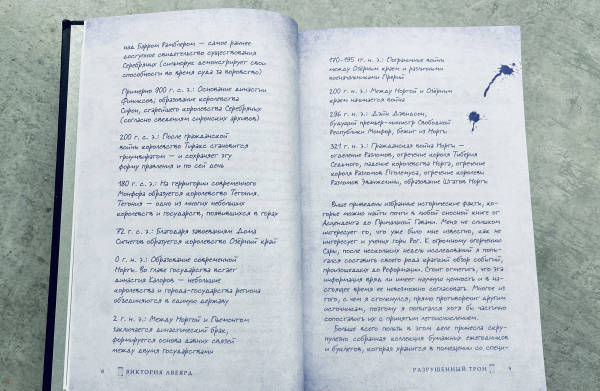 над Бэрром Рамблером — самое раннее
доступное свидетельство существования
Серебряных (сильнорук демонстрирует свои
способности во время суда за воровство)
Примерно 900 г. с. э.: Основание династии
Финиксов; образование королевства
Сирон, старейшего королевства Серебряных
(согласно сведениям сиронских архивов)
200 г. с. э.: После гражданской
войны королевство Тиракс становится
триумвиратом — и сохраняет эту
форму правления и по сей день
180 г. с. э.: На территории современного
Монфора образуется королевство Тетония.
Тетония — одно из многих небольших
королевств и государств, появившихся в горах
72 г. с. э.: Благодаря завоеваниям Дома
Сигнетов образуется королевство Озёрный край
0 г. н. э.: Образование современной
Норты. Во главе государства встает
династия Калоров — небольшие
королевства и города-государства региона
объединяются в единую державу
2 г. н. э.: Между Нортой и Пьемонтом
заключается династический брак,
формируется основа давних связей
между двумя государствами
8 ВИКТОРИЯ АВЕЯРД
170–195 гг. н. э.: Пограничные войны
между Озёрным краем и различными
военачальниками Прерий
200 г. н. э.: Между Нортой и Озёрным
краем начинается война
296 г. н. э.: Дэйн Дэвидсон,
будущий премьер-министр Свободной
Республики Монфор, бежит из Норты
321 г. н. э.: Гражданская война Норты —
отделение Разломов, отречение короля Тиберия
Седьмого, падение королевства Норта, отречение
короля Разломов Птолемуса, отречение королевы
Разломов Эванжелины, образование Штатов Норты
Выше приведены избранные исторические факты, ко-
торые можно найти почти в любой сносной книге от
Асцендента до Примильной Гавани. Меня не слишком
интересует то, что уже было мне известно, как не
интересует и ученых горы Рог. К огромному огорчению
Сары, после нескольких недель исследований я попы-
тался составить своего рода краткий обзор событий,
произошедших до Реформации. Стоит отметить, что эта
информация вряд ли имеет научную ценность и в на-
стоящее время ее невозможно согласовать. Многое из
того, с чем я столкнулся, прямо противоречит другим
источникам, поэтому я попытался хотя бы частично
сопоставить их с принятым летоисчислением.
Больше всего пользы в этом деле принесла скру-
пулезно собранная коллекция бумажных ежегодников
и буклетов, которая хранится в помещении со специ-
РАЗРУШЕННЫЙ ТРОН 9